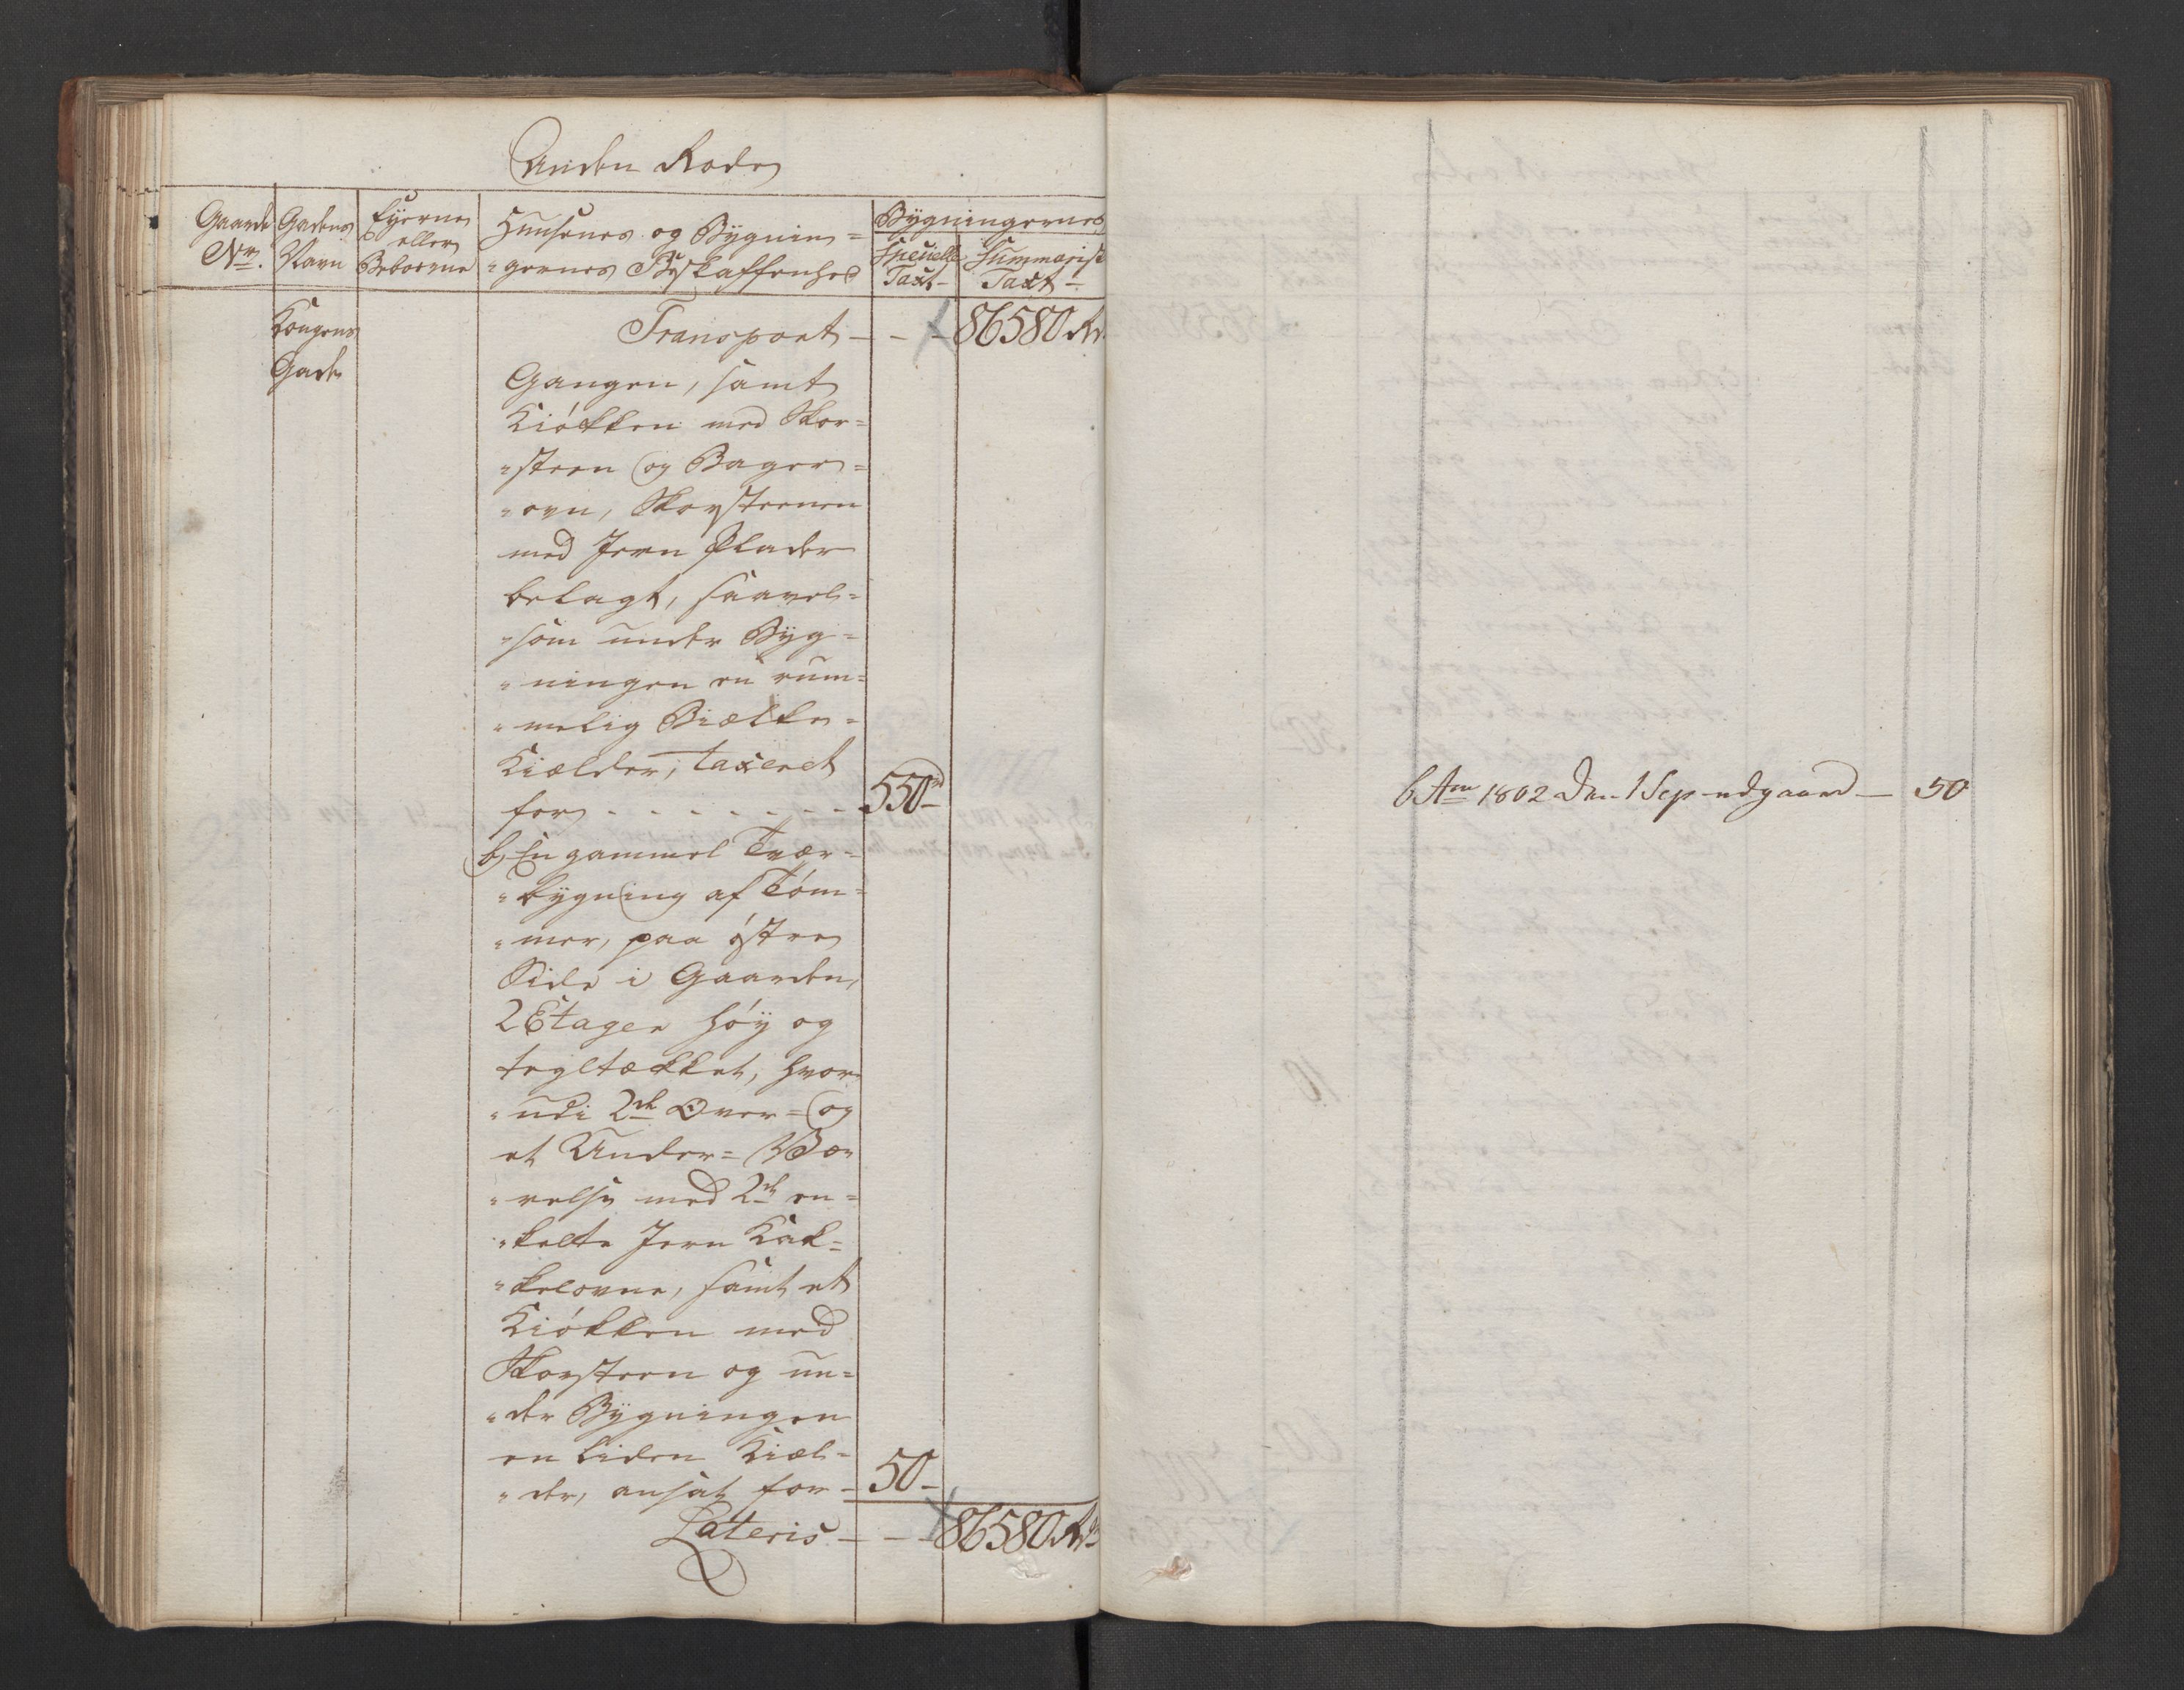 Anden Rode
Gaarde Nr.
Gadens Navn
Eyerne eller Beboerne
Huusenes og Bygnin=
"gernes Beskaffenhed
Bygningernes
Specielle Taxt
Summarisk Taxt
Kongens
Gade
Transport - - - 86580 Rd
Gangen, samt
Kiökken med Skor=
"steen og Bager=
"ovn, Skorsteenen
med Jern Plader
belagt, saavel=
"som under Byg=
"ningen en rum=
"melig Biælke=
Kielder, taxeret
for - - - - - - - 550 rd
b, En gammel Tvær=
"bygning af Töm=
"mer, paa östre
Side i Gaarden,
2 Etager höy og
tegltækket, hvor
"udi 2de Over= og
et Under= Væ=
"relse med 2de en=
"kelte Jern Kak=
"kelovne, samt et
Kiökken med
Skorsteen og un=
"der Bygningen
en liden Kiel=
"der, ansat for - 50 -
Lateris - - - 86580 Rd
b Ao 1802 den 1 Sep udgaaed - 50